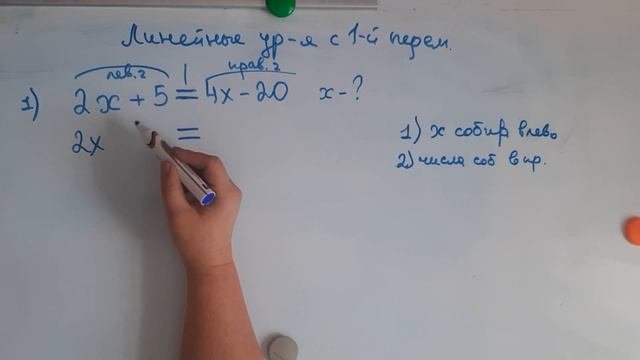 Линейные ур-я с 1-й перем.
лев. ч прав. ч
1) 2x + 5 = 4x - 20 x - ?
2x =
1) x собир влево
2) числа соб впр.